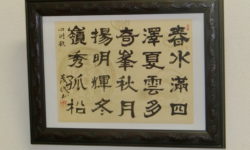 春水滿四
澤夏雲多
奇峯秋月
揚明輝冬
嶺秀孤松
四時歌